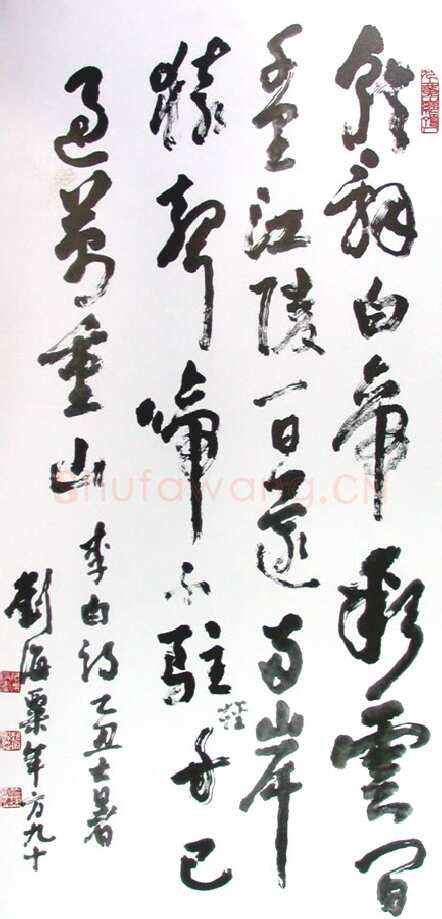 朝辞白帝彩雲间
千里江陵一日還两岸
猿聲啼不駐舟已
過萬重山
李白詩乙丑大暑
劉海粟年方九十
Shufawang.CN